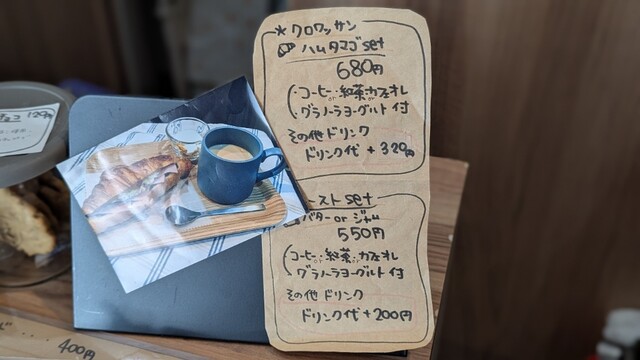 * クロワッサン
ハムタマゴset
680円
(コーヒー・紅茶 or カフェオレ
グラノーラヨーグルト付
その他ドリンク
ドリンク代 + 320円
ーストset
バター or ジャム
550円
(コーヒー or 紅茶 or カフェオレ
グラノーラヨーグルト付
その他ドリンク
ドリンク代 + 200円
400円